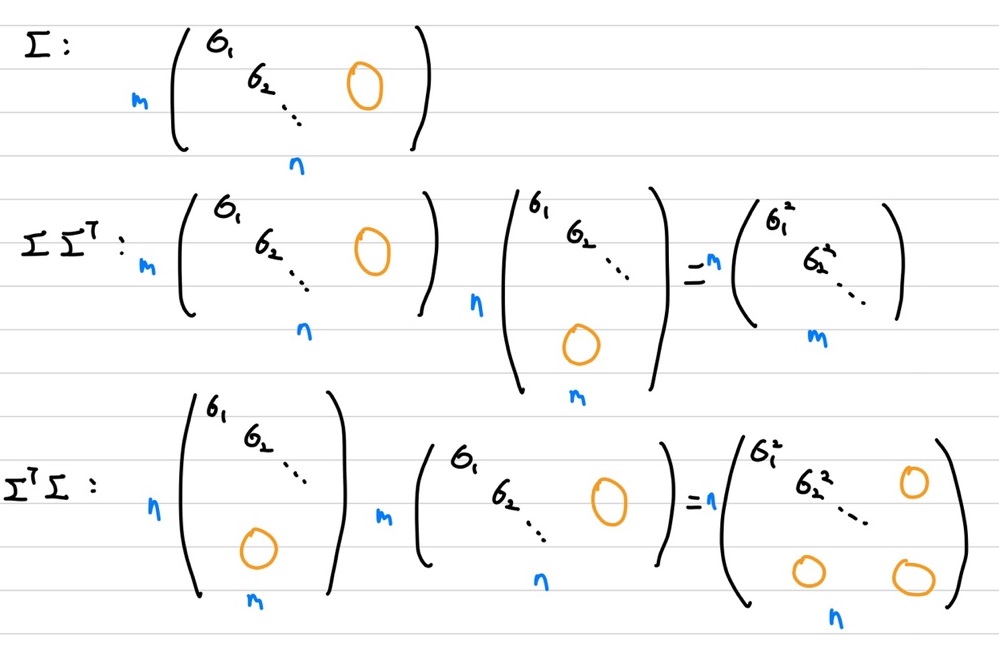 Σ: m ( σ₁ σ₂ ⋱ O ) n
Σ Σᵀ: m ( σ₁ σ₂ ⋱ O ) n n ( σ₁ σ₂ ⋱ O ) m = m ( σ₁² σ₂² ⋱ ) m
ΣᵀΣ: n ( σ₁ σ₂ ⋱ O ) m m ( σ₁ σ₂ ⋱ O ) n = n ( σ₁² σ₂² ⋱ O O O ) n